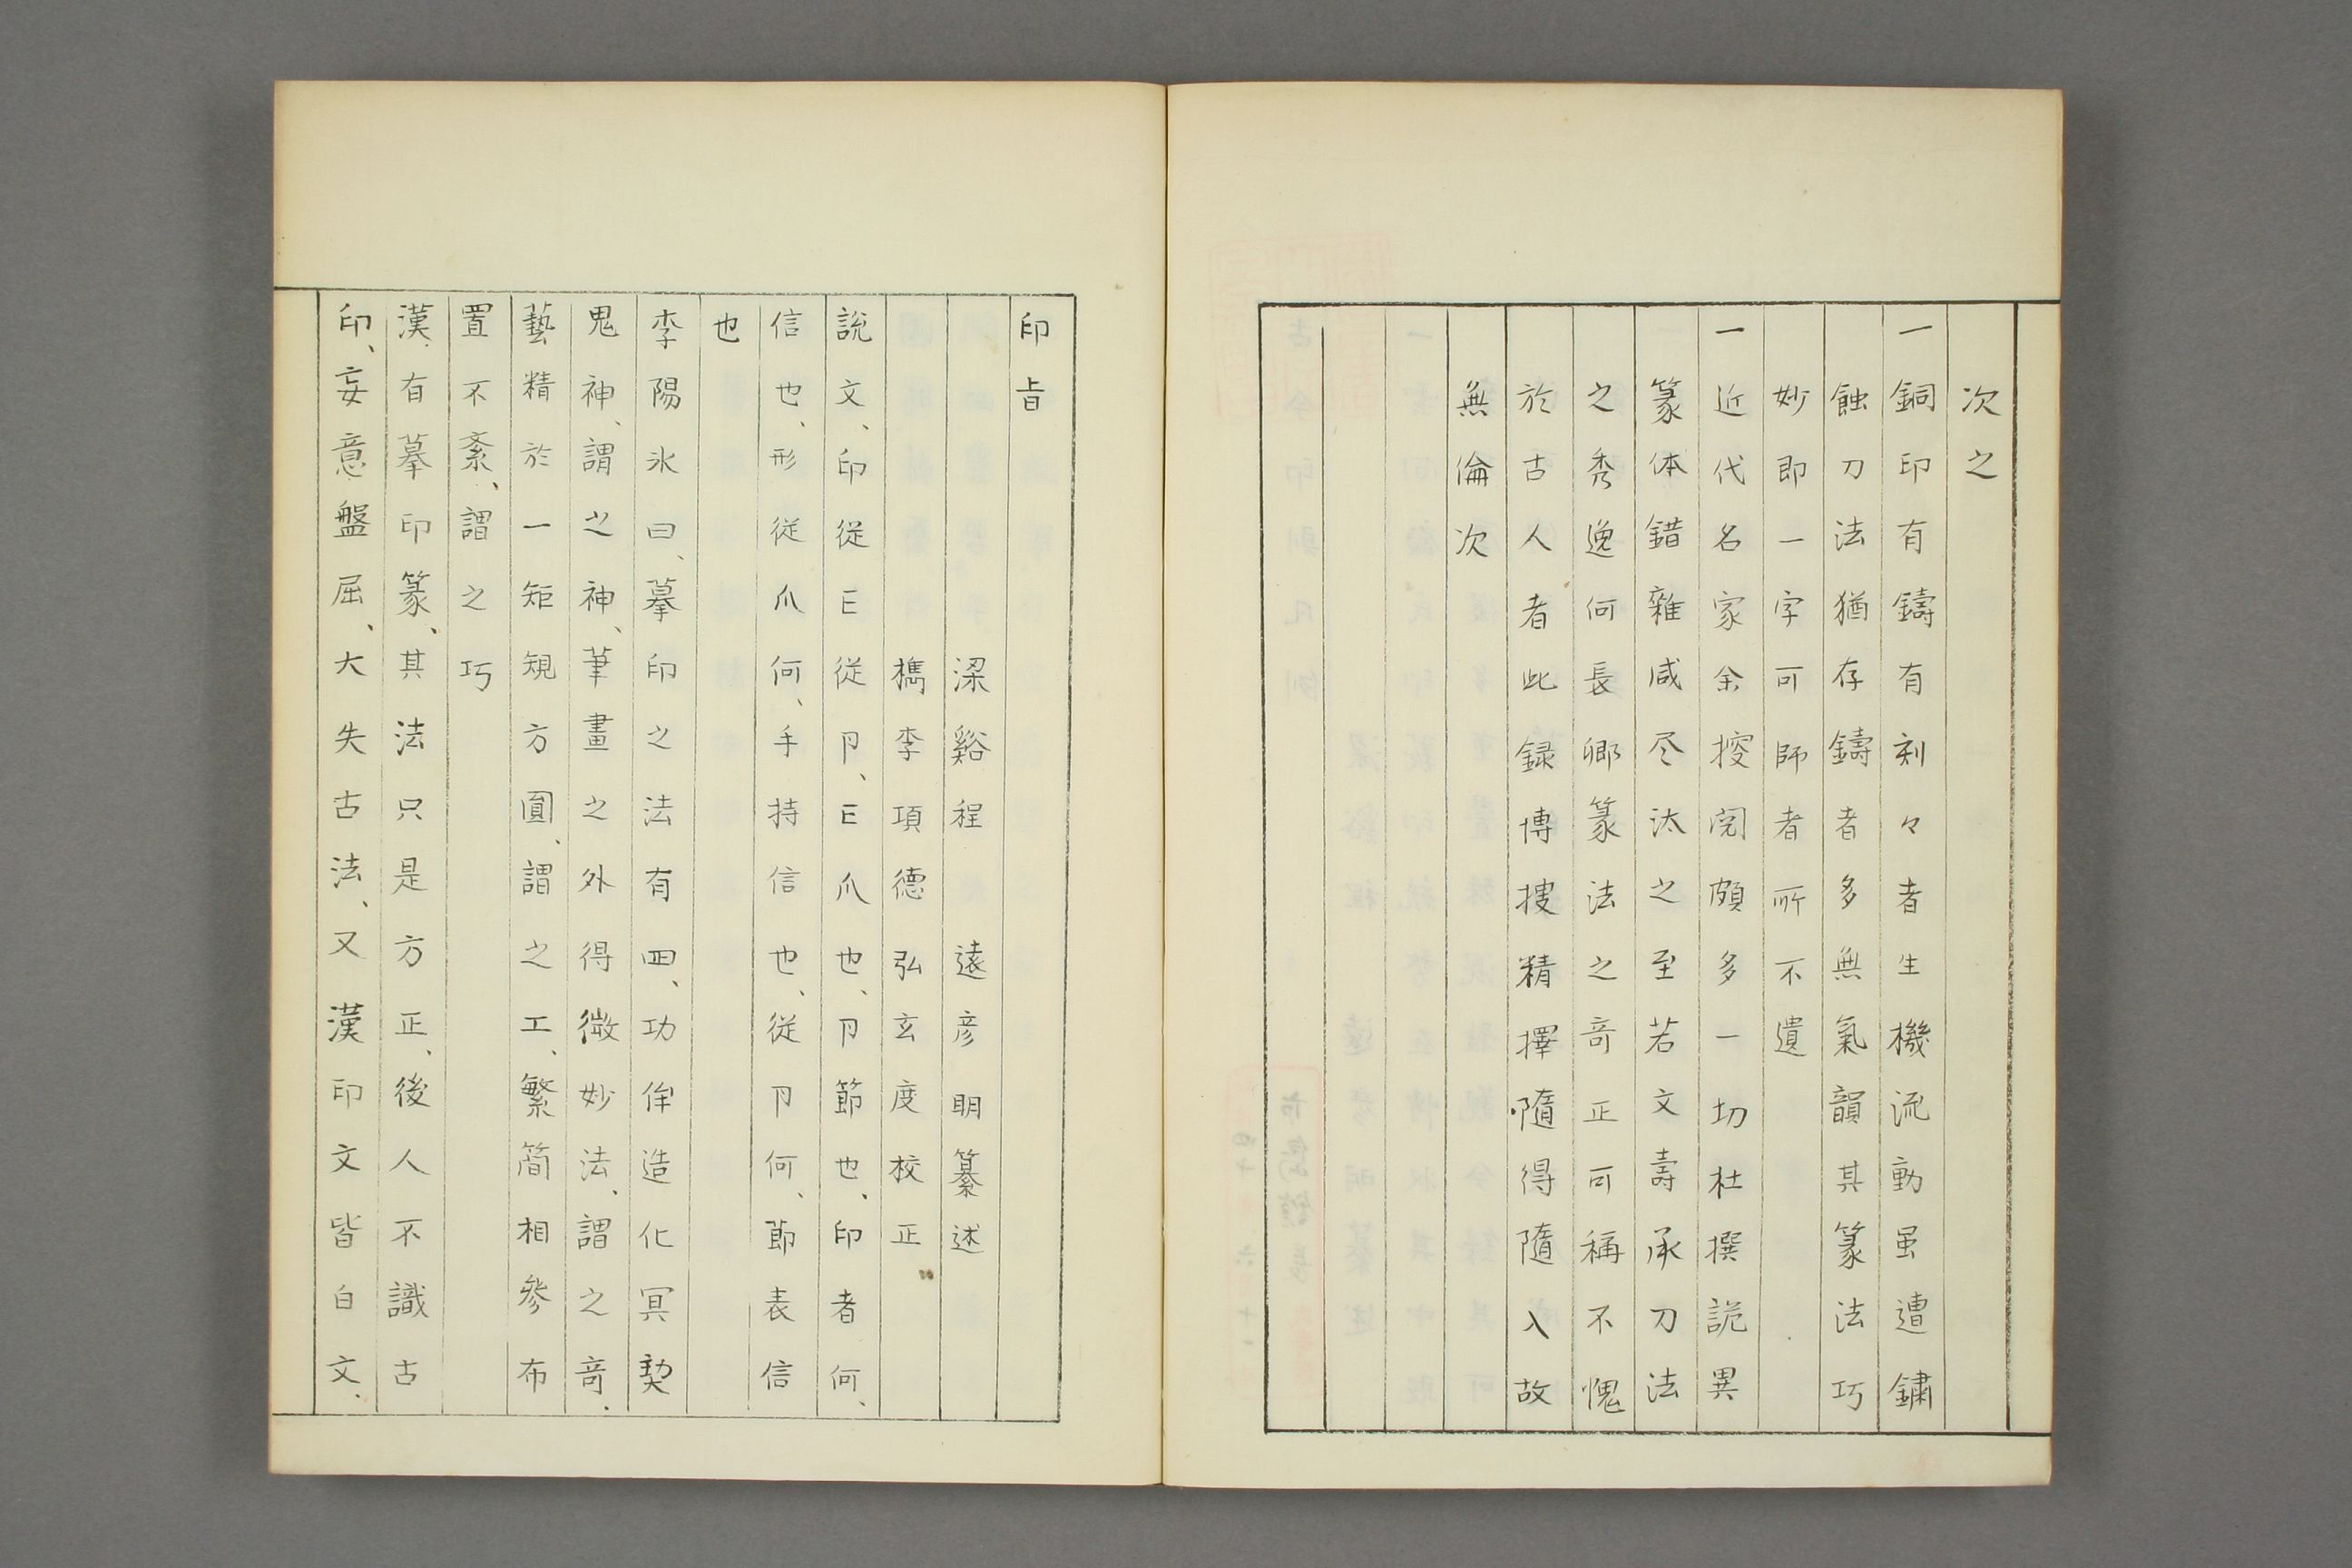 次之
一銅印有鑄有刻々者生機流動虽遭鏽
蝕刀法猶存鑄者多無氣韻其篆法巧
妙即一字可師者所不遺
一近代名家余搲閱頗多一切杜撰詭異
篆体錯雜咸尽汰之至若文壽承刀法
之秀逸何長卿篆法之奇正可稱不愧
於古人者此録博搜精擇隨得隨入故
無倫次
印旨
梁谿程 遠彦明纂述
檇李項德弘玄度校正
說文、印從𠂎從卪、𠂎爪也、卪節也、印者何、
信也、形從爪何、手持信也、從卪何、節表信
也
李陽氷曰、摹印之法有四、功侔造化冥契
鬼神、謂之神、筆畫之外得微妙法、謂之奇、
藝精於一矩規方圓、謂之工、繁簡相參布
置不紊、謂之巧
漢有摹印篆、其法只是方正、後人不識古
印、妄意盤屈、大失古法、又漢印文皆白文、